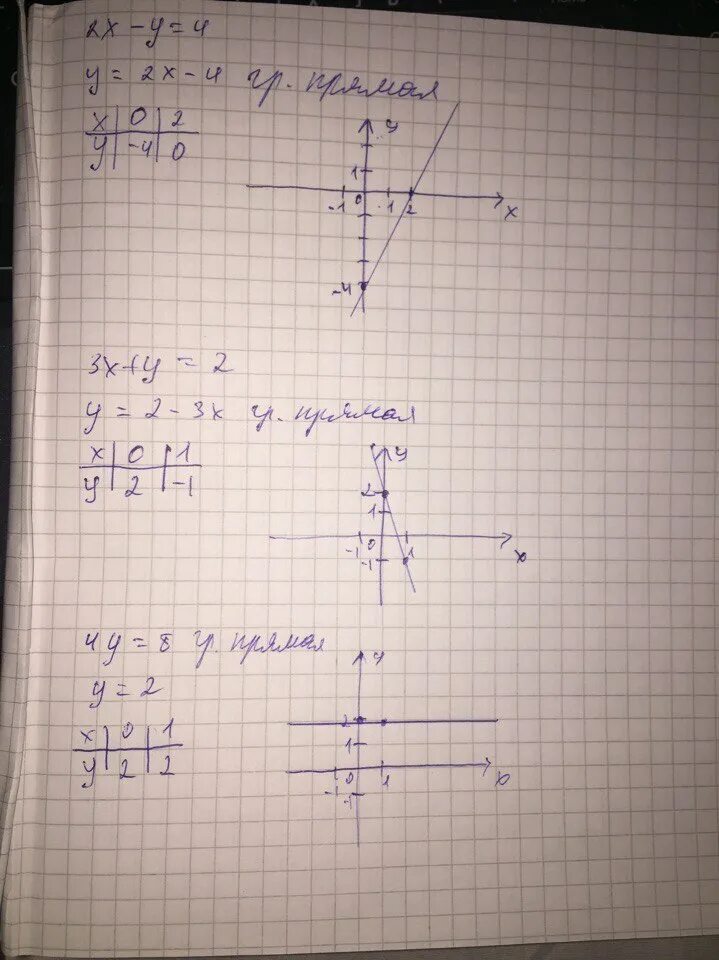 2x - y = 4
y = 2x - 4 гр. прямая
x | 0 | 2
y | -4 | 0
y
1
-1 0 1 2 x
-4
3x + y = 2
y = 2 - 3x гр. прямая
x | 0 | 1
y | 2 | -1
y
2
1
-1 0 1 x
-1
4y = 8 гр. прямая
y = 2
x | 0 | 1
y | 2 | 2
y
2
1
-1 0 1 x
-1